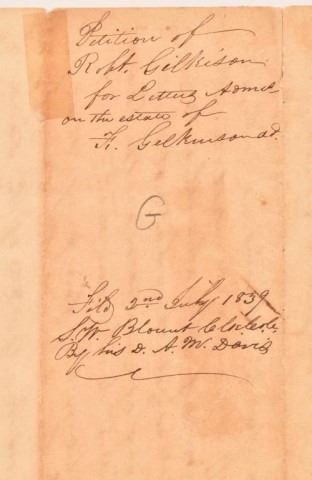 Petition of
Robt. Gilkison
for Letters Adms
on the estate of
F. Gilkinson ad.
G
Fild 2nd July 1839
S. W. Blount Clk
By his D. A. M. Davis